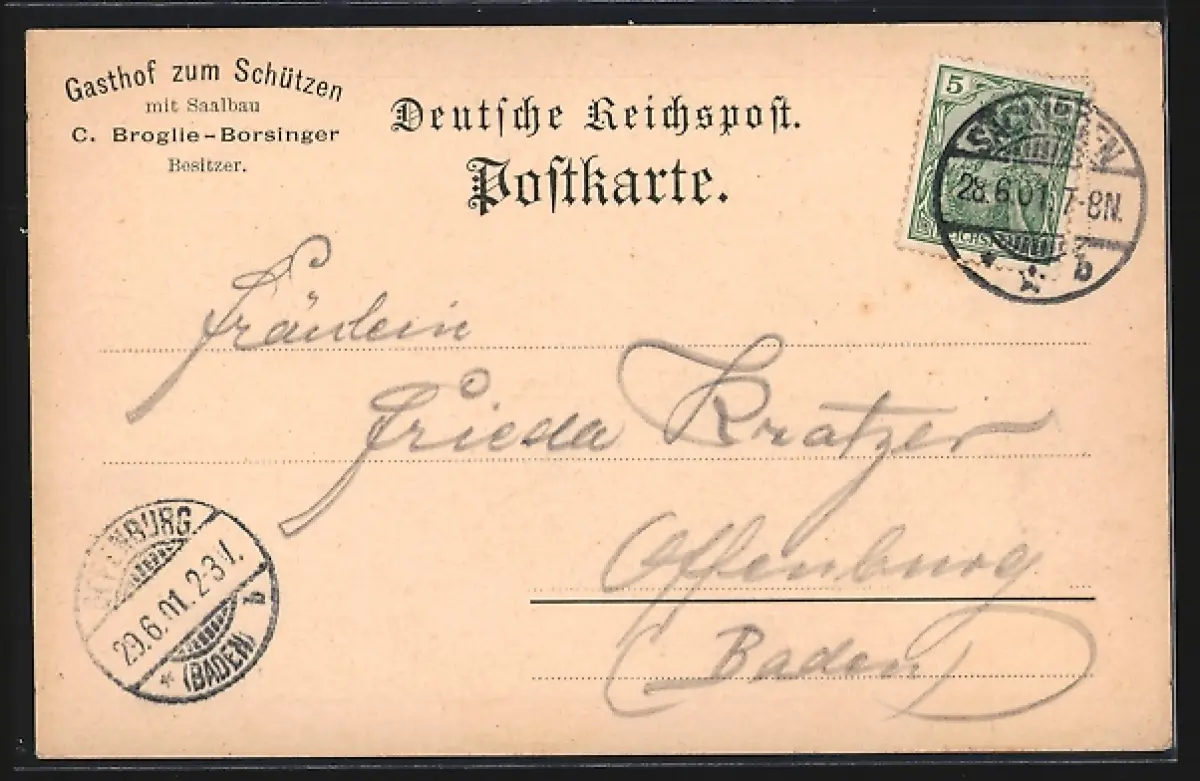 Gasthof zum Schützen
mit Saalbau
C. Broglie-Borsinger
Besitzer.
Deutsche Reichspost.
Postkarte.
5
REICHSPOST
SÄCKINGEN
28.6.01. 7-8N.
b
Fräulein
Frieda Kratzer
Offenburg
(Baden)
OFFENBURG.
29.6.01. 2-3V.
(BADEN)